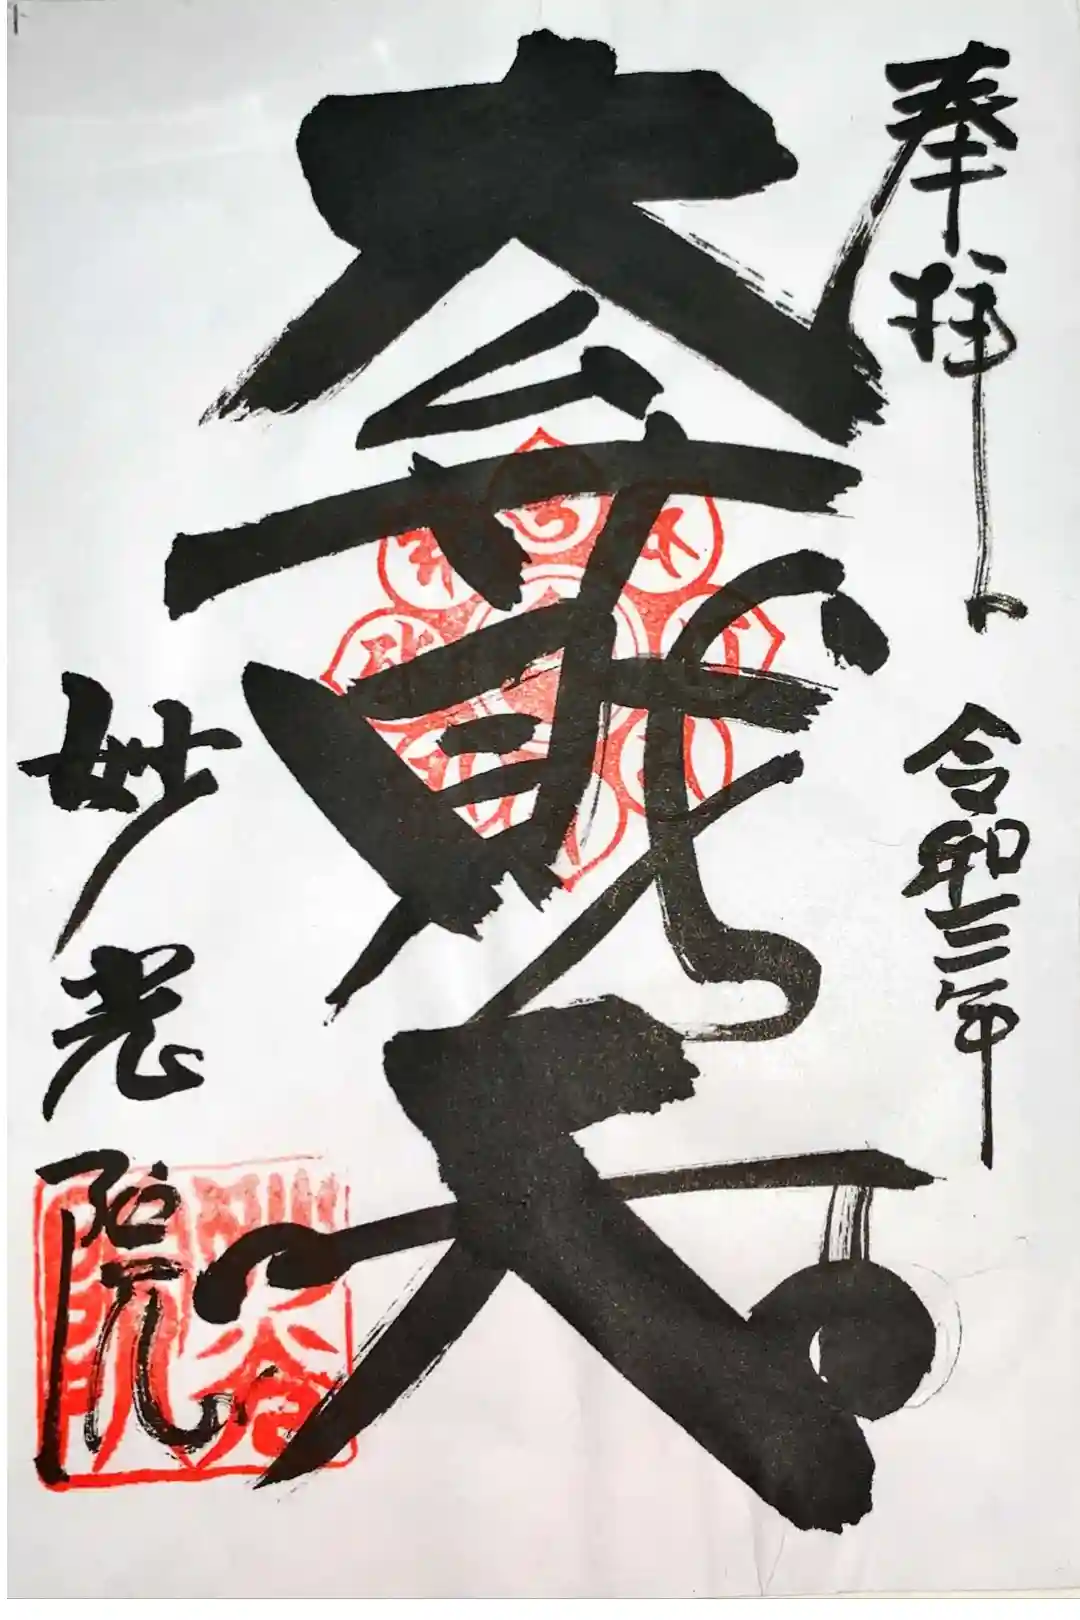 奉拝
令和三年
大弁財天
妙光院